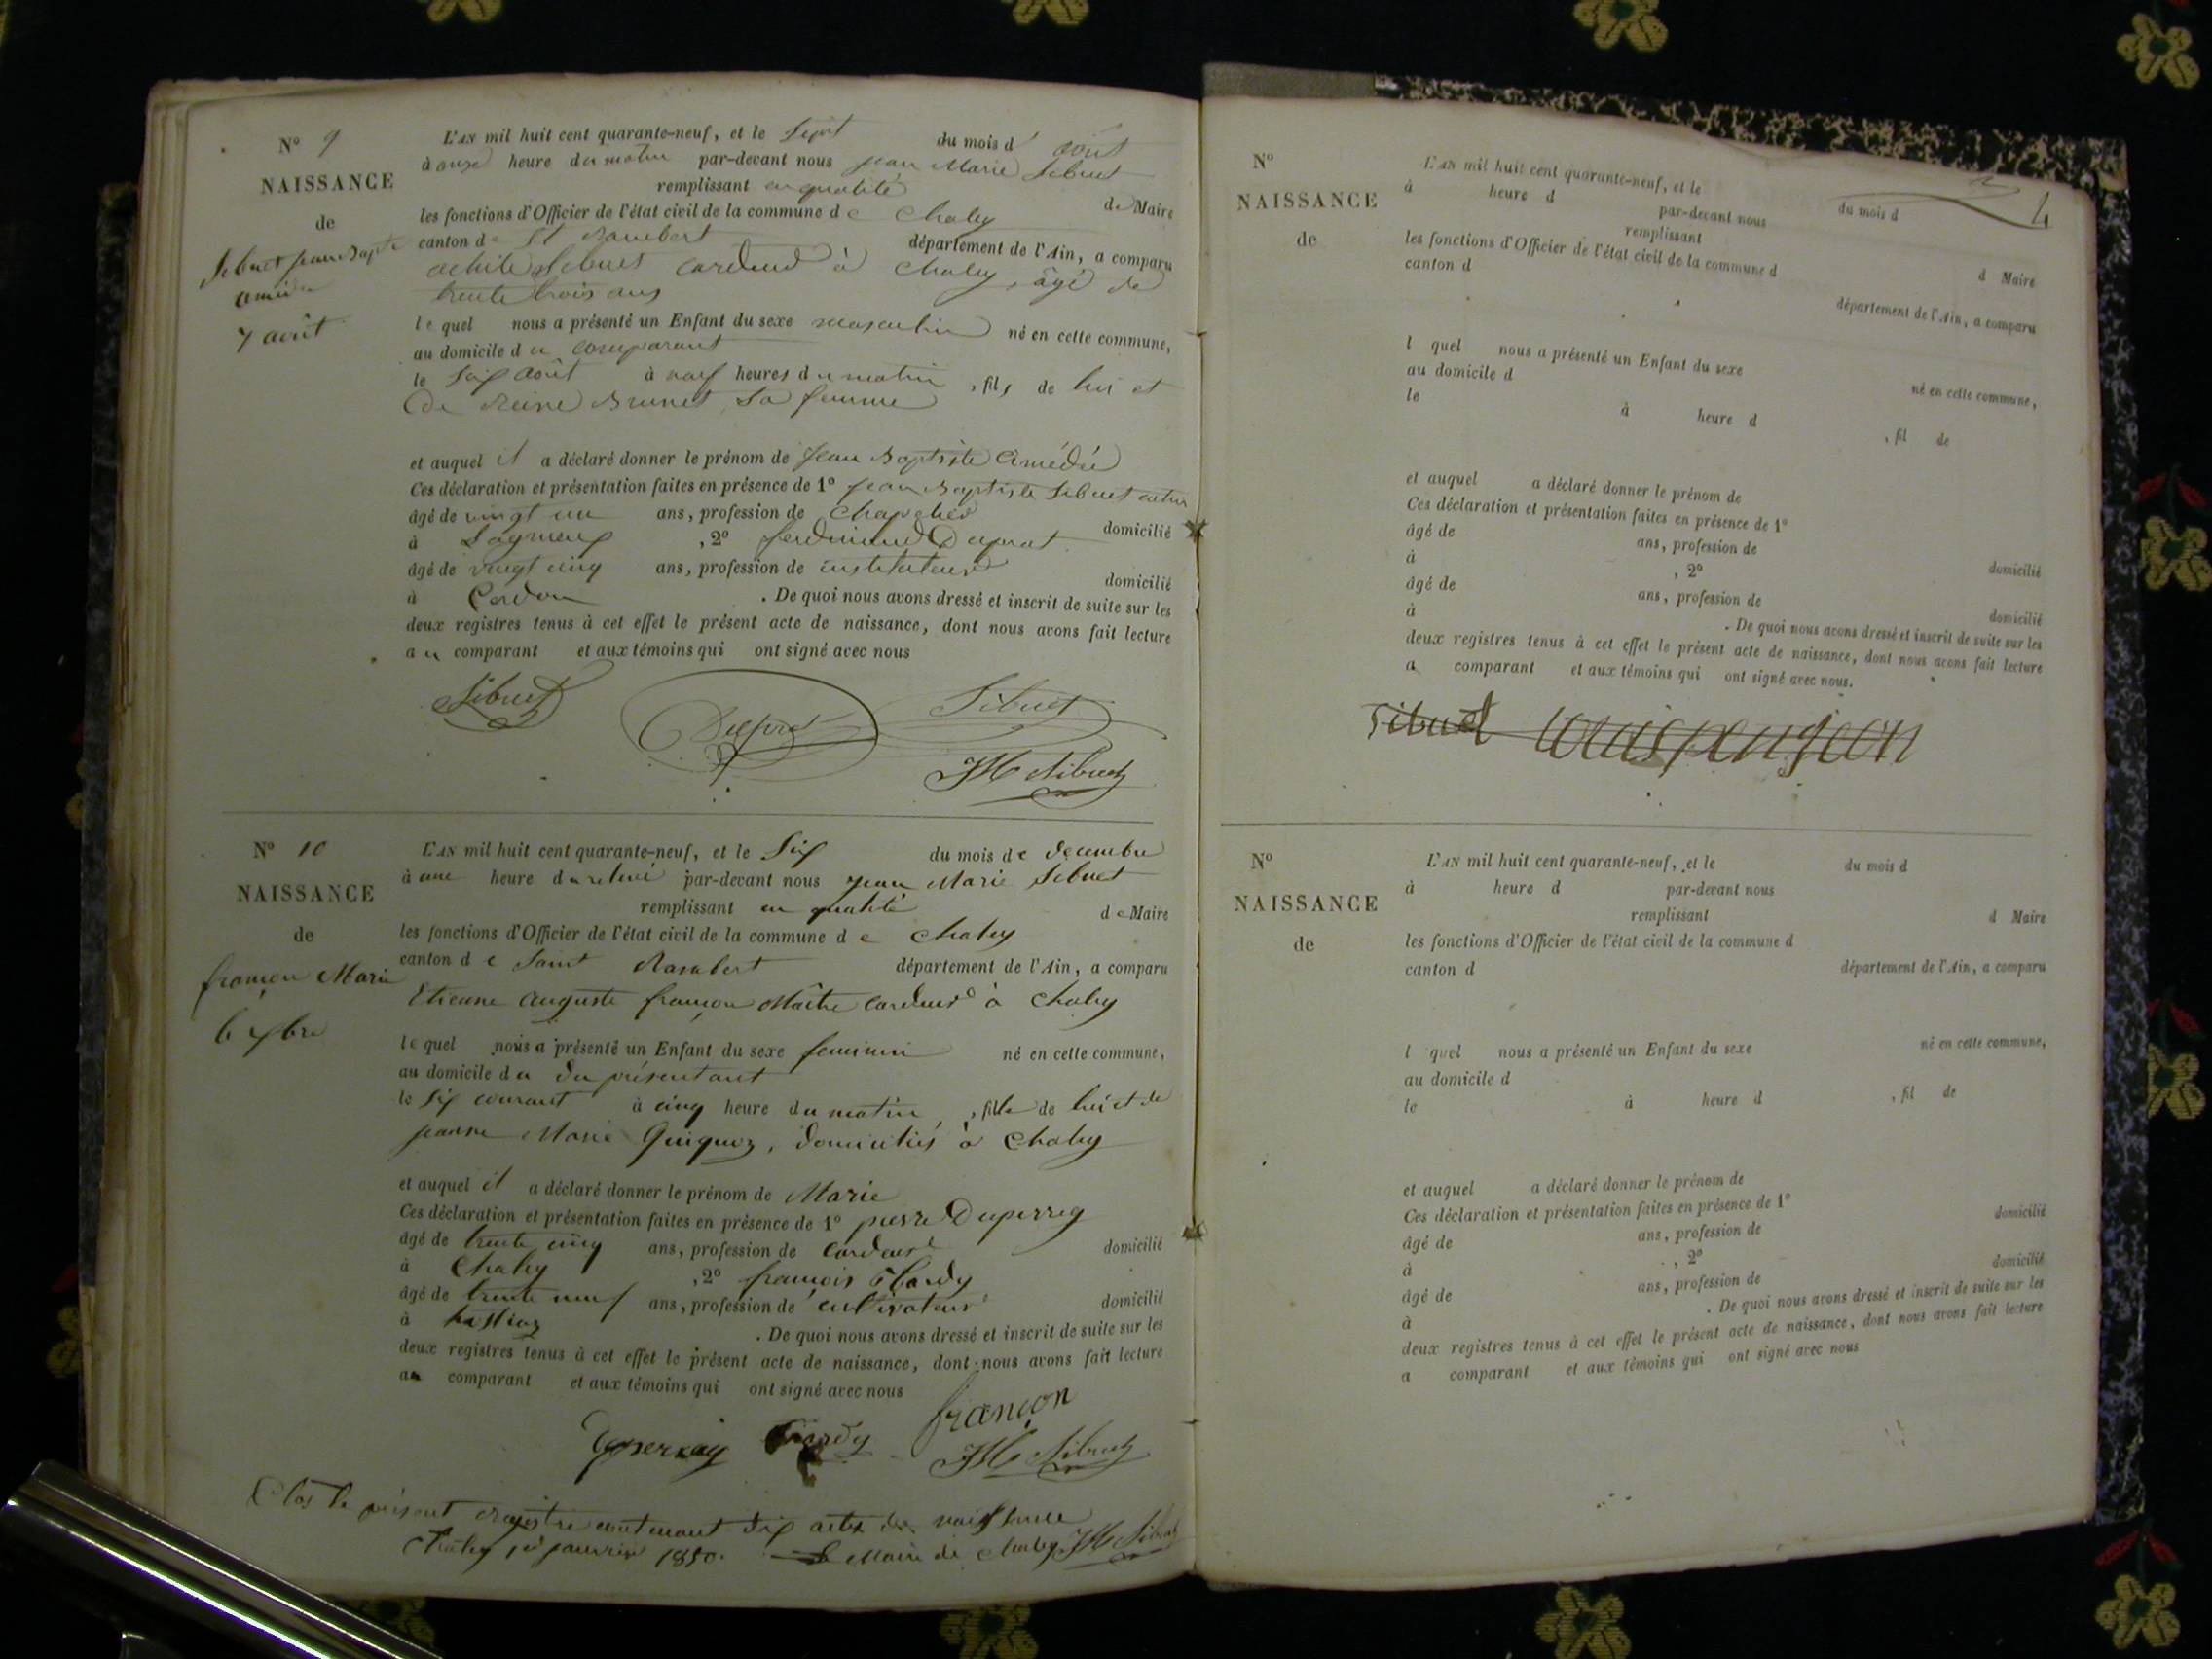 N° 9
NAISSANCE
de
Sibuet jean Bapte
amédée
7 août
L'AN mil huit cent quarante-neuf, et le Sept du mois d' août
à onze heure du matin par-devant nous jean Marie Sibuet
remplissant en qualité de Maire
les fonctions d'Officier de l'état civil de la commune de Chaley
canton de St Rambert département de l'Ain, a comparu
Sibuet cardeur à Chaley, âgé de
trente trois ans
lequel nous a présenté un Enfant du sexe masculin né en cette commune,
au domicile du comparant
le août à heures du matin, fils de lui et
De Reine Brunet, Sa femme
et auquel il a déclaré donner le prénom de Jean Baptiste Amédée
Ces déclaration et présentation faites en présence de 1° jean Baptiste Sibuet
âgé de vingt un ans, profession de Chapelier domicilié
à Lagnieux, 2° ferdinand Duprat
âgé de vingt cinq ans, profession de instituteur domicilié
à Cordon . De quoi nous avons dressé et inscrit de suite sur les
deux registres tenus à cet effet le présent acte de naissance, dont nous avons fait lecture
au comparant et aux témoins qui ont signé avec nous
Sibuet Sibuet
JM Sibuet
N° 10
NAISSANCE
de
françon Marie
6 Xbre
L'AN mil huit cent quarante-neuf, et le Six du mois de decembre
à une heure du relevé par-devant nous jean Marie Sibuet
remplissant en qualité de Maire
les fonctions d'Officier de l'état civil de la commune de Chaley
canton de Saint Rambert département de l'Ain, a comparu
Etienne auguste françon Maître cardeur à Chaley
lequel nous a présenté un Enfant du sexe feminin né en cette commune,
au domicile du du présentant
le Six courant à cinq heure du matin, fille de lui et de
jeanne Marie Guiguoz, domiciliés à Chaley
et auquel il a déclaré donner le prénom de Marie
Ces déclaration et présentation faites en présence de 1° pierre Duperrey
âgé de trente cinq ans, profession de cardeur domicilié
à Chaley, 2° françois Tardy
âgé de trente neuf ans, profession de cultivateur domicilié
à . De quoi nous avons dressé et inscrit de suite sur les
deux registres tenus à cet effet le présent acte de naissance, dont nous avons fait lecture
au comparant et aux témoins qui ont signé avec nous
françon
Tardy JM Sibuet
Clos le présent registre contenant dix actes de naissance
Chaley 1er janvier 1850. Le Maire de Chaley JM Sibuet
4
N°
NAISSANCE
de
L'AN mil huit cent quarante-neuf, et le du mois d
à heure d par-devant nous
remplissant d Maire
les fonctions d'Officier de l'état civil de la commune d
canton d département de l'Ain, a comparu
l quel nous a présenté un Enfant du sexe né en cette commune,
au domicile d
le à heure d , fil de
et auquel a déclaré donner le prénom de
Ces déclaration et présentation faites en présence de 1°
âgé de ans, profession de domicilié
à , 2°
âgé de ans, profession de domicilié
à . De quoi nous avons dressé et inscrit de suite sur les
deux registres tenus à cet effet le présent acte de naissance, dont nous avons fait lecture
a comparant et aux témoins qui ont signé avec nous.
Sibuet Louis pengeon
N°
NAISSANCE
de
L'AN mil huit cent quarante-neuf, et le du mois d
à heure d par-devant nous
remplissant d Maire
les fonctions d'Officier de l'état civil de la commune d
canton d département de l'Ain, a comparu
l quel nous a présenté un Enfant du sexe né en cette commune,
au domicile d
le à heure d , fil de
et auquel a déclaré donner le prénom de
Ces déclaration et présentation faites en présence de 1°
âgé de ans, profession de domicilié
à , 2°
âgé de ans, profession de domicilié
à . De quoi nous avons dressé et inscrit de suite sur les
deux registres tenus à cet effet le présent acte de naissance, dont nous avons fait lecture
a comparant et aux témoins qui ont signé avec nous